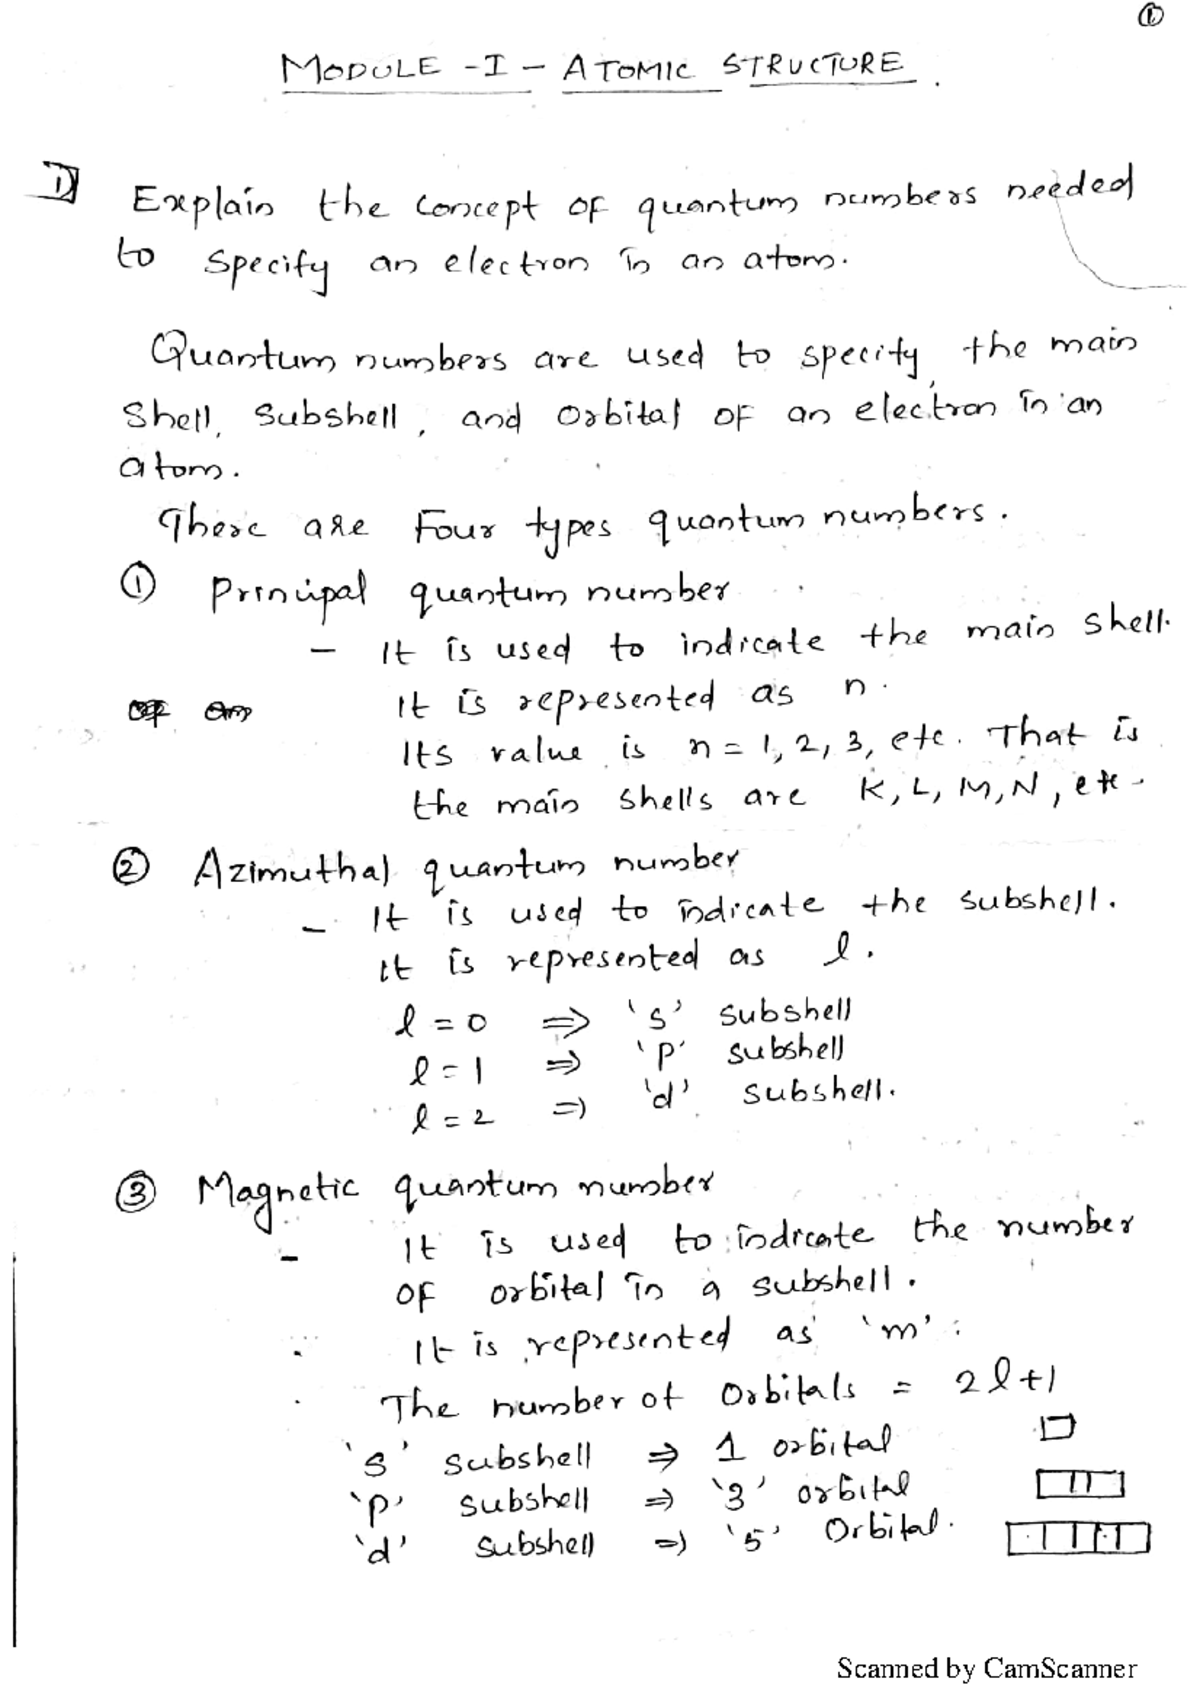 1
MODULE -I - ATOMIC STRUCTURE.
1) Explain the concept of quantum numbers needed
to specify an electron in an atom.
Quantum numbers are used to specify the main
shell, subshell, and orbital of an electron in an
atom.
There are Four types quantum numbers.
1 Principal quantum number
- It is used to indicate the main shell.
It is represented as n.
Its value is n = 1, 2, 3, etc. That is
the main shells are K, L, M, N, etc.
2 Azimuthal quantum number
- It is used to indicate the subshell.
It is represented as l.
l = 0 ⇒ 's' subshell
l = 1 ⇒ 'p' subshell
l = 2 ⇒ 'd' subshell.
3 Magnetic quantum number
- It is used to indicate the number
of orbital in a subshell.
It is represented as 'm'.
The number of orbitals = 2l+1
's' subshell ⇒ 1 orbital
'p' subshell ⇒ '3' orbital
'd' subshell ⇒ '5' Orbital.
Scanned by CamScanner